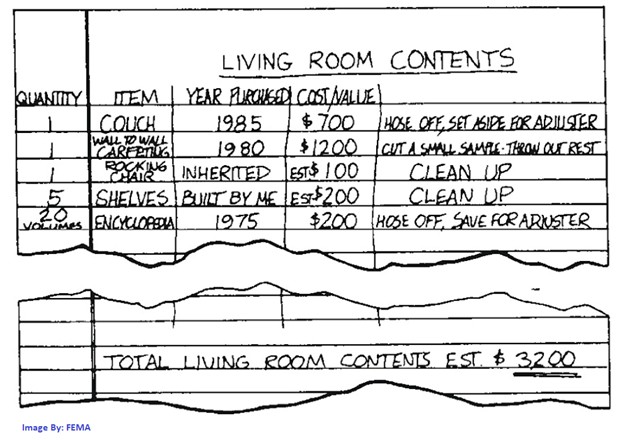 LIVING ROOM CONTENTS
QUANTITY ITEM YEAR PURCHASED COST/VALUE
1 COUCH 1985 $700 HOSE OFF, SET ASIDE FOR ADJUSTER
1 WALL TO WALL CARPETING 1980 $1200 CUT A SMALL SAMPLE - THROW OUT REST
1 ROCKING CHAIR INHERITED EST $100 CLEAN UP
5 SHELVES BUILT BY ME EST $200 CLEAN UP
20 VOLUMES ENCYCLOPEDIA 1975 $200 HOSE OFF, SAVE FOR ADJUSTER
TOTAL LIVING ROOM CONTENTS EST. $ 3200
Image By: FEMA